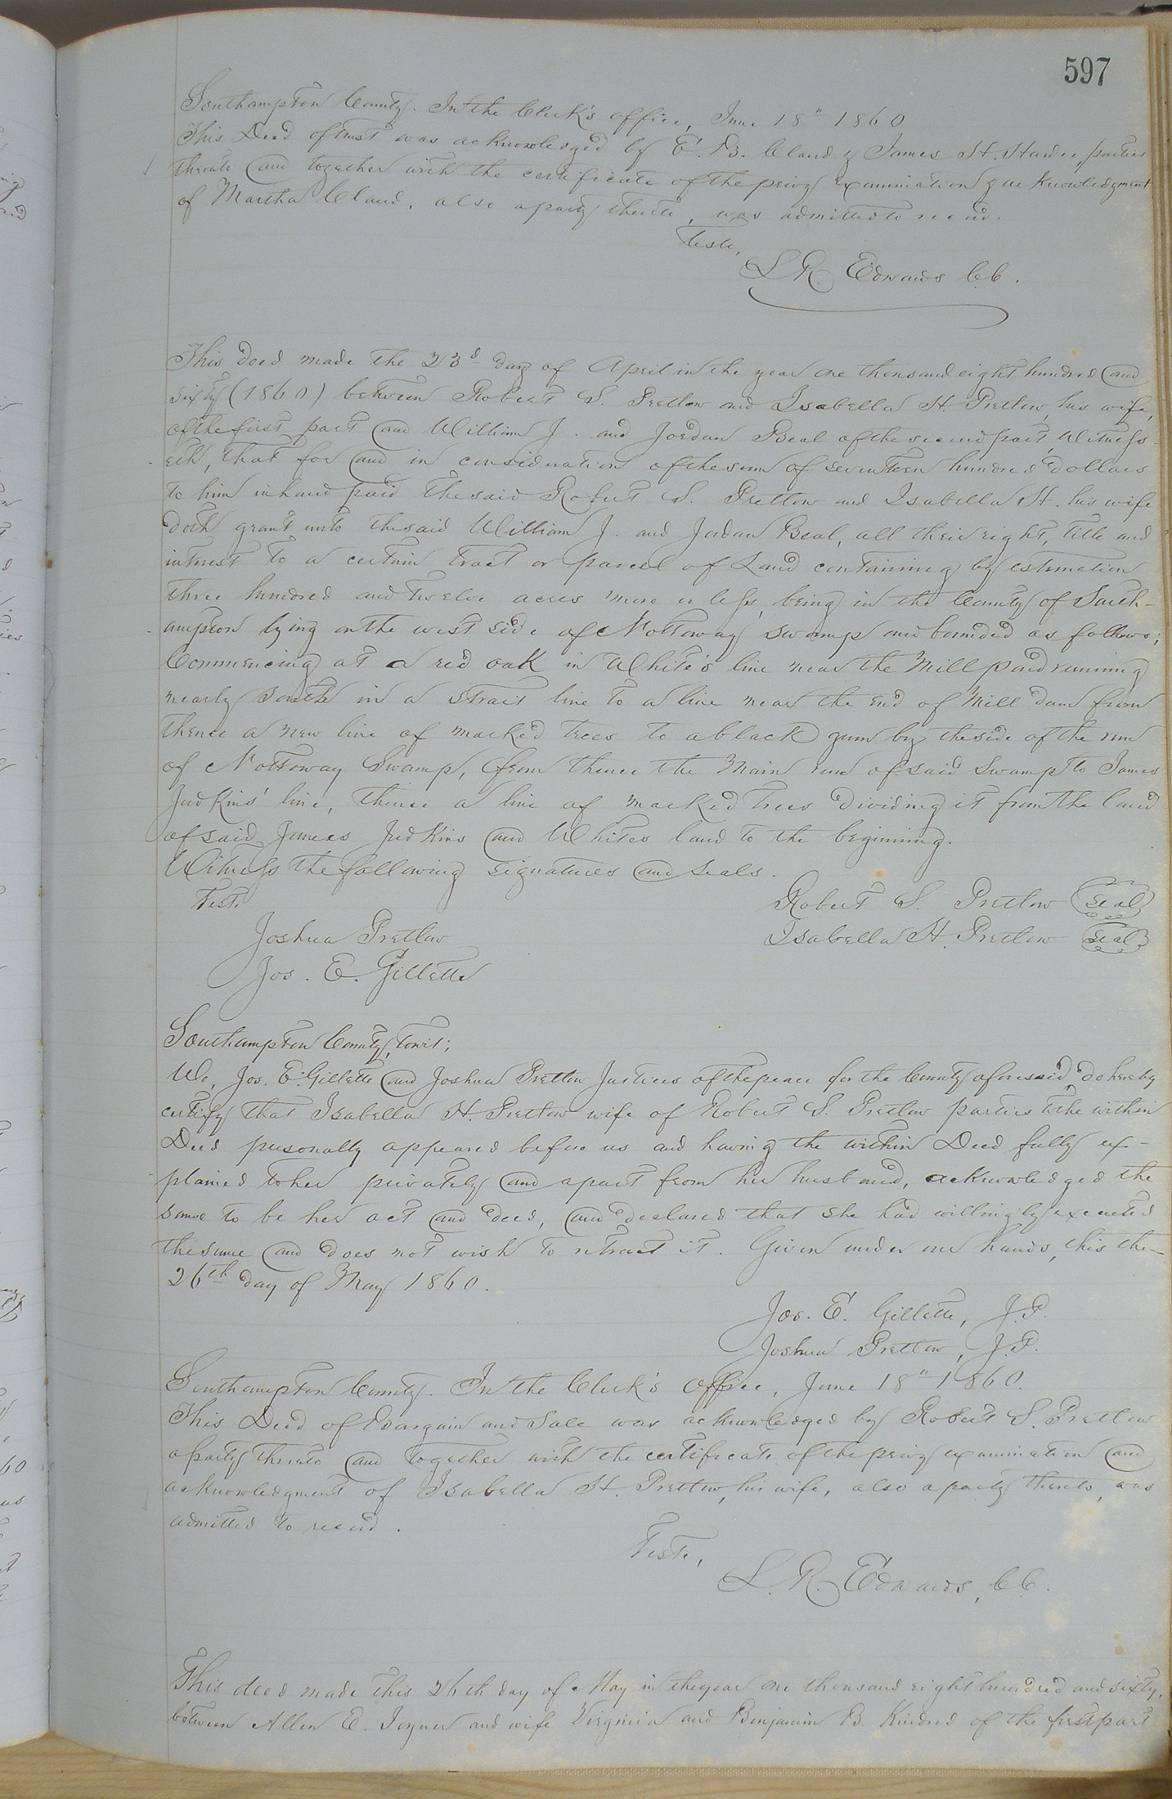 597
Southampton County. In the Clerk's office, June 18" 1860
This Deed of trust was acknowledged by E. B. Claud & James H. parties
thereto and together with the certificate of the privy examination & acknowledgment
of Martha Claud, also a party thereto, was admitted to record.
Teste,
L. R. Edwards C.C.
This deed made the 23d day of April in the year one thousand eight hundred and
sixty (1860) between Robert S. Pretlow and Isabella H. Pretlow, his wife,
of the first part and William J. and Jordan Beal of the second part, Witness-
eth, that for and in consideration of the sum of seventeen hundred dollars
to him in hand paid the said Robert S. Pretlow and Isabella H. his wife
doth grant unto the said William J. and Jordan Beal, all their right, title and
interest to a certain tract or parcel of Land containing by estimation
three hundred and twelve acres more or less, being in the County of South-
ampton lying on the west side of Nottoway swamp and bounded as follows;
Commencing at a red oak in White's line near the Mill pond running
nearly South in a strait line to a line near the end of Mill dam from
thence a new line of marked trees to a black gum by the side of the run
of Nottoway Swamp, from thence the Main run of said Swamp to James
Judkins' line, thence a line of marked trees dividing it from the land
of said James Judkins and Whites land to the beginning.
Witness the following signatures and seals.
Teste
Robert S. Pretlow (seal)
Joshua Pretlow
Isabella H. Pretlow (seal)
Jos. E. Gillette
Southampton County, towit;
We, Jos. E. Gillette and Joshua Pretlow Justices of the peace for the County aforesaid, do hereby
certify that Isabella H. Pretlow wife of Robert S. Pretlow parties to the within
Deed personally appeared before us and having the within Deed fully ex-
plained to her privately and apart from her husband, acknowledged the
same to be her act and deed, and declared that she had willingly executed
the same and does not wish to retract it. Given under our hands, this the
26th day of May 1860.
Jos. E. Gillette, J.P.
Joshua Pretlow, J.P.
Southampton County. In the Clerk's office, June 18" 1860.
This Deed of Bargain and Sale was acknowledged by Robert S. Pretlow
a party thereto and together with the certificate of the privy examination and
acknowledgment of Isabella H. Pretlow, his wife, also a party thereto, was
admitted to record.
Teste,
L. R. Edwards, C.C.
This deed made this 26th day of May in the year one thousand eight hundred and sixty,
between Allen E. Joyner and wife Virginia and Benjamin B. Kindred of the first part